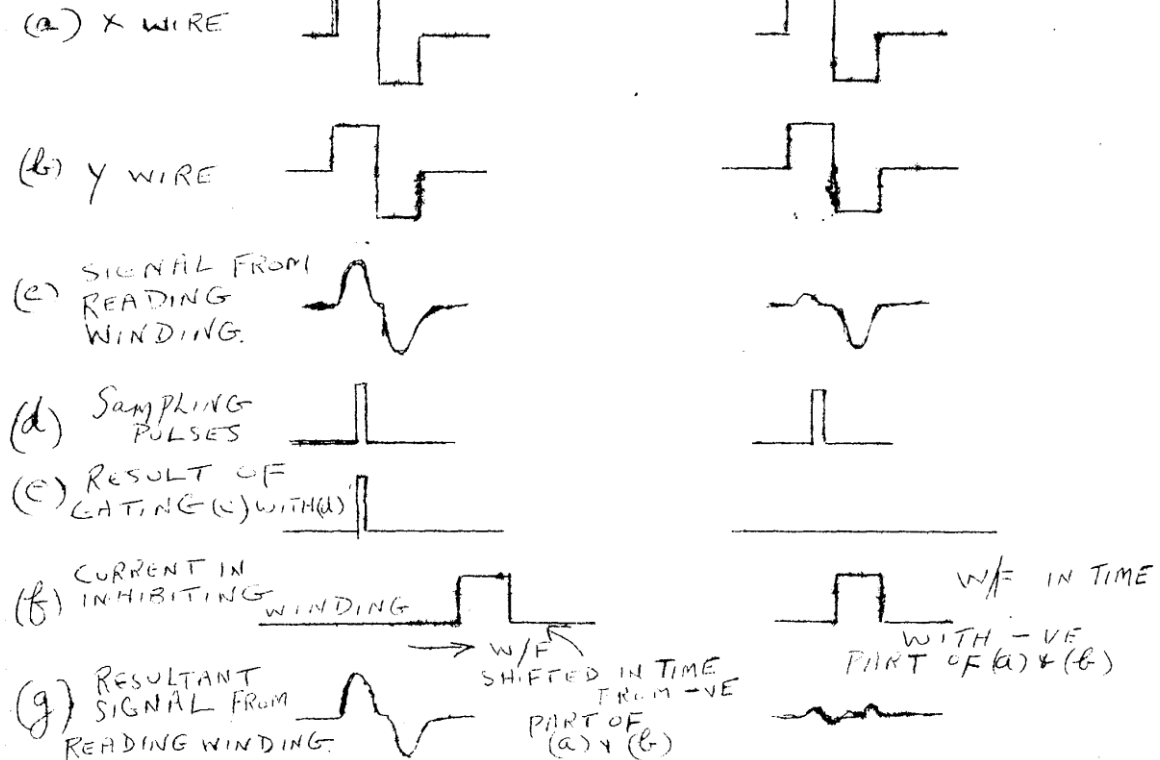 (a) X WIRE
(b) Y WIRE
(c) SIGNAL FROM
READING
WINDING.
(d) SAMPLING
PULSES
(e) RESULT OF
GATING (c) WITH (d)
(f) CURRENT IN
INHIBITING
WINDING
→ W/F
SHIFTED IN TIME
FROM -VE
PART OF
(a) & (b)
W/F IN TIME
WITH -VE
PART OF (a) & (b)
(g) RESULTANT
SIGNAL FROM
READING WINDING.